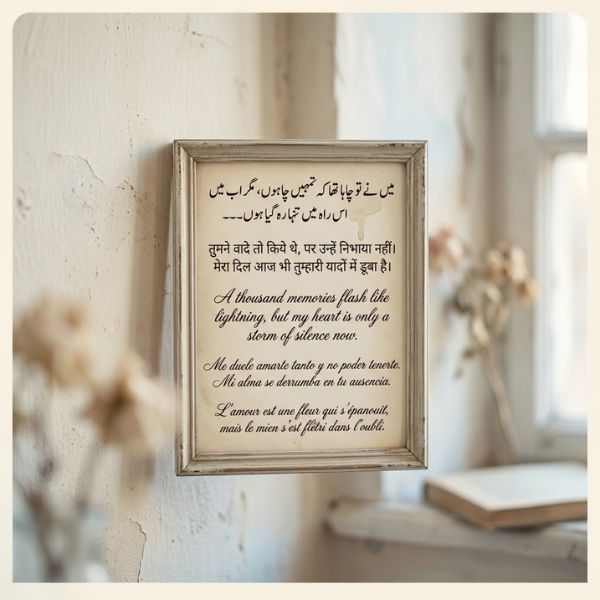 میں نے تو چاہا تھا کہ تمہیں چاہوں، مگر اب میں
اس راہ میں تنہا رہ گیا ہوں۔۔۔
तुमने वादे तो किये थे, पर उन्हें निभाया नहीं।
मेरा दिल आज भी तुम्हारी यादों में डूबा है।
A thousand memories flash like
lightning, but my heart is only a
storm of silence now.
Me duele amarte tanto y no poder tenerte.
Mi alma se derrumba en tu ausencia.
L'amour est une fleur qui s'épanouit,
mais le mien s'est flétri dans l'oubli.